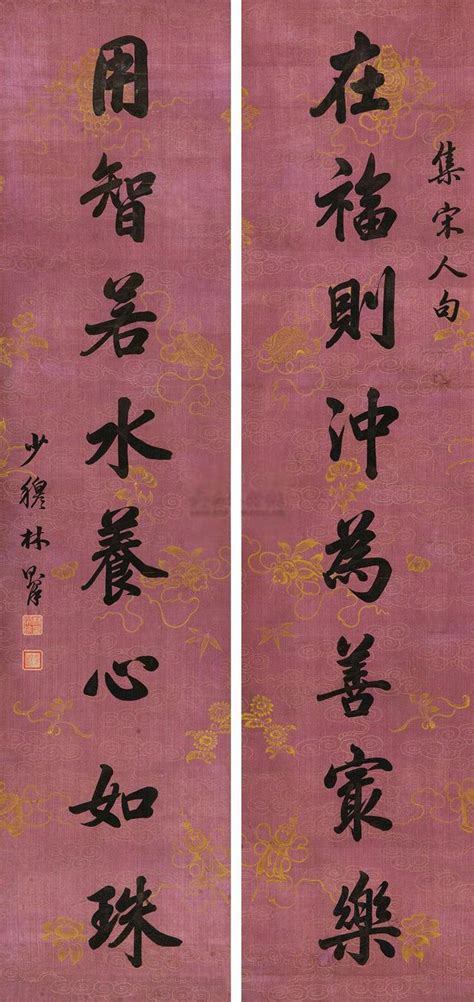 集宋人句
在福則沖為善㝡樂
用智若水養心如珠
少穆林則徐